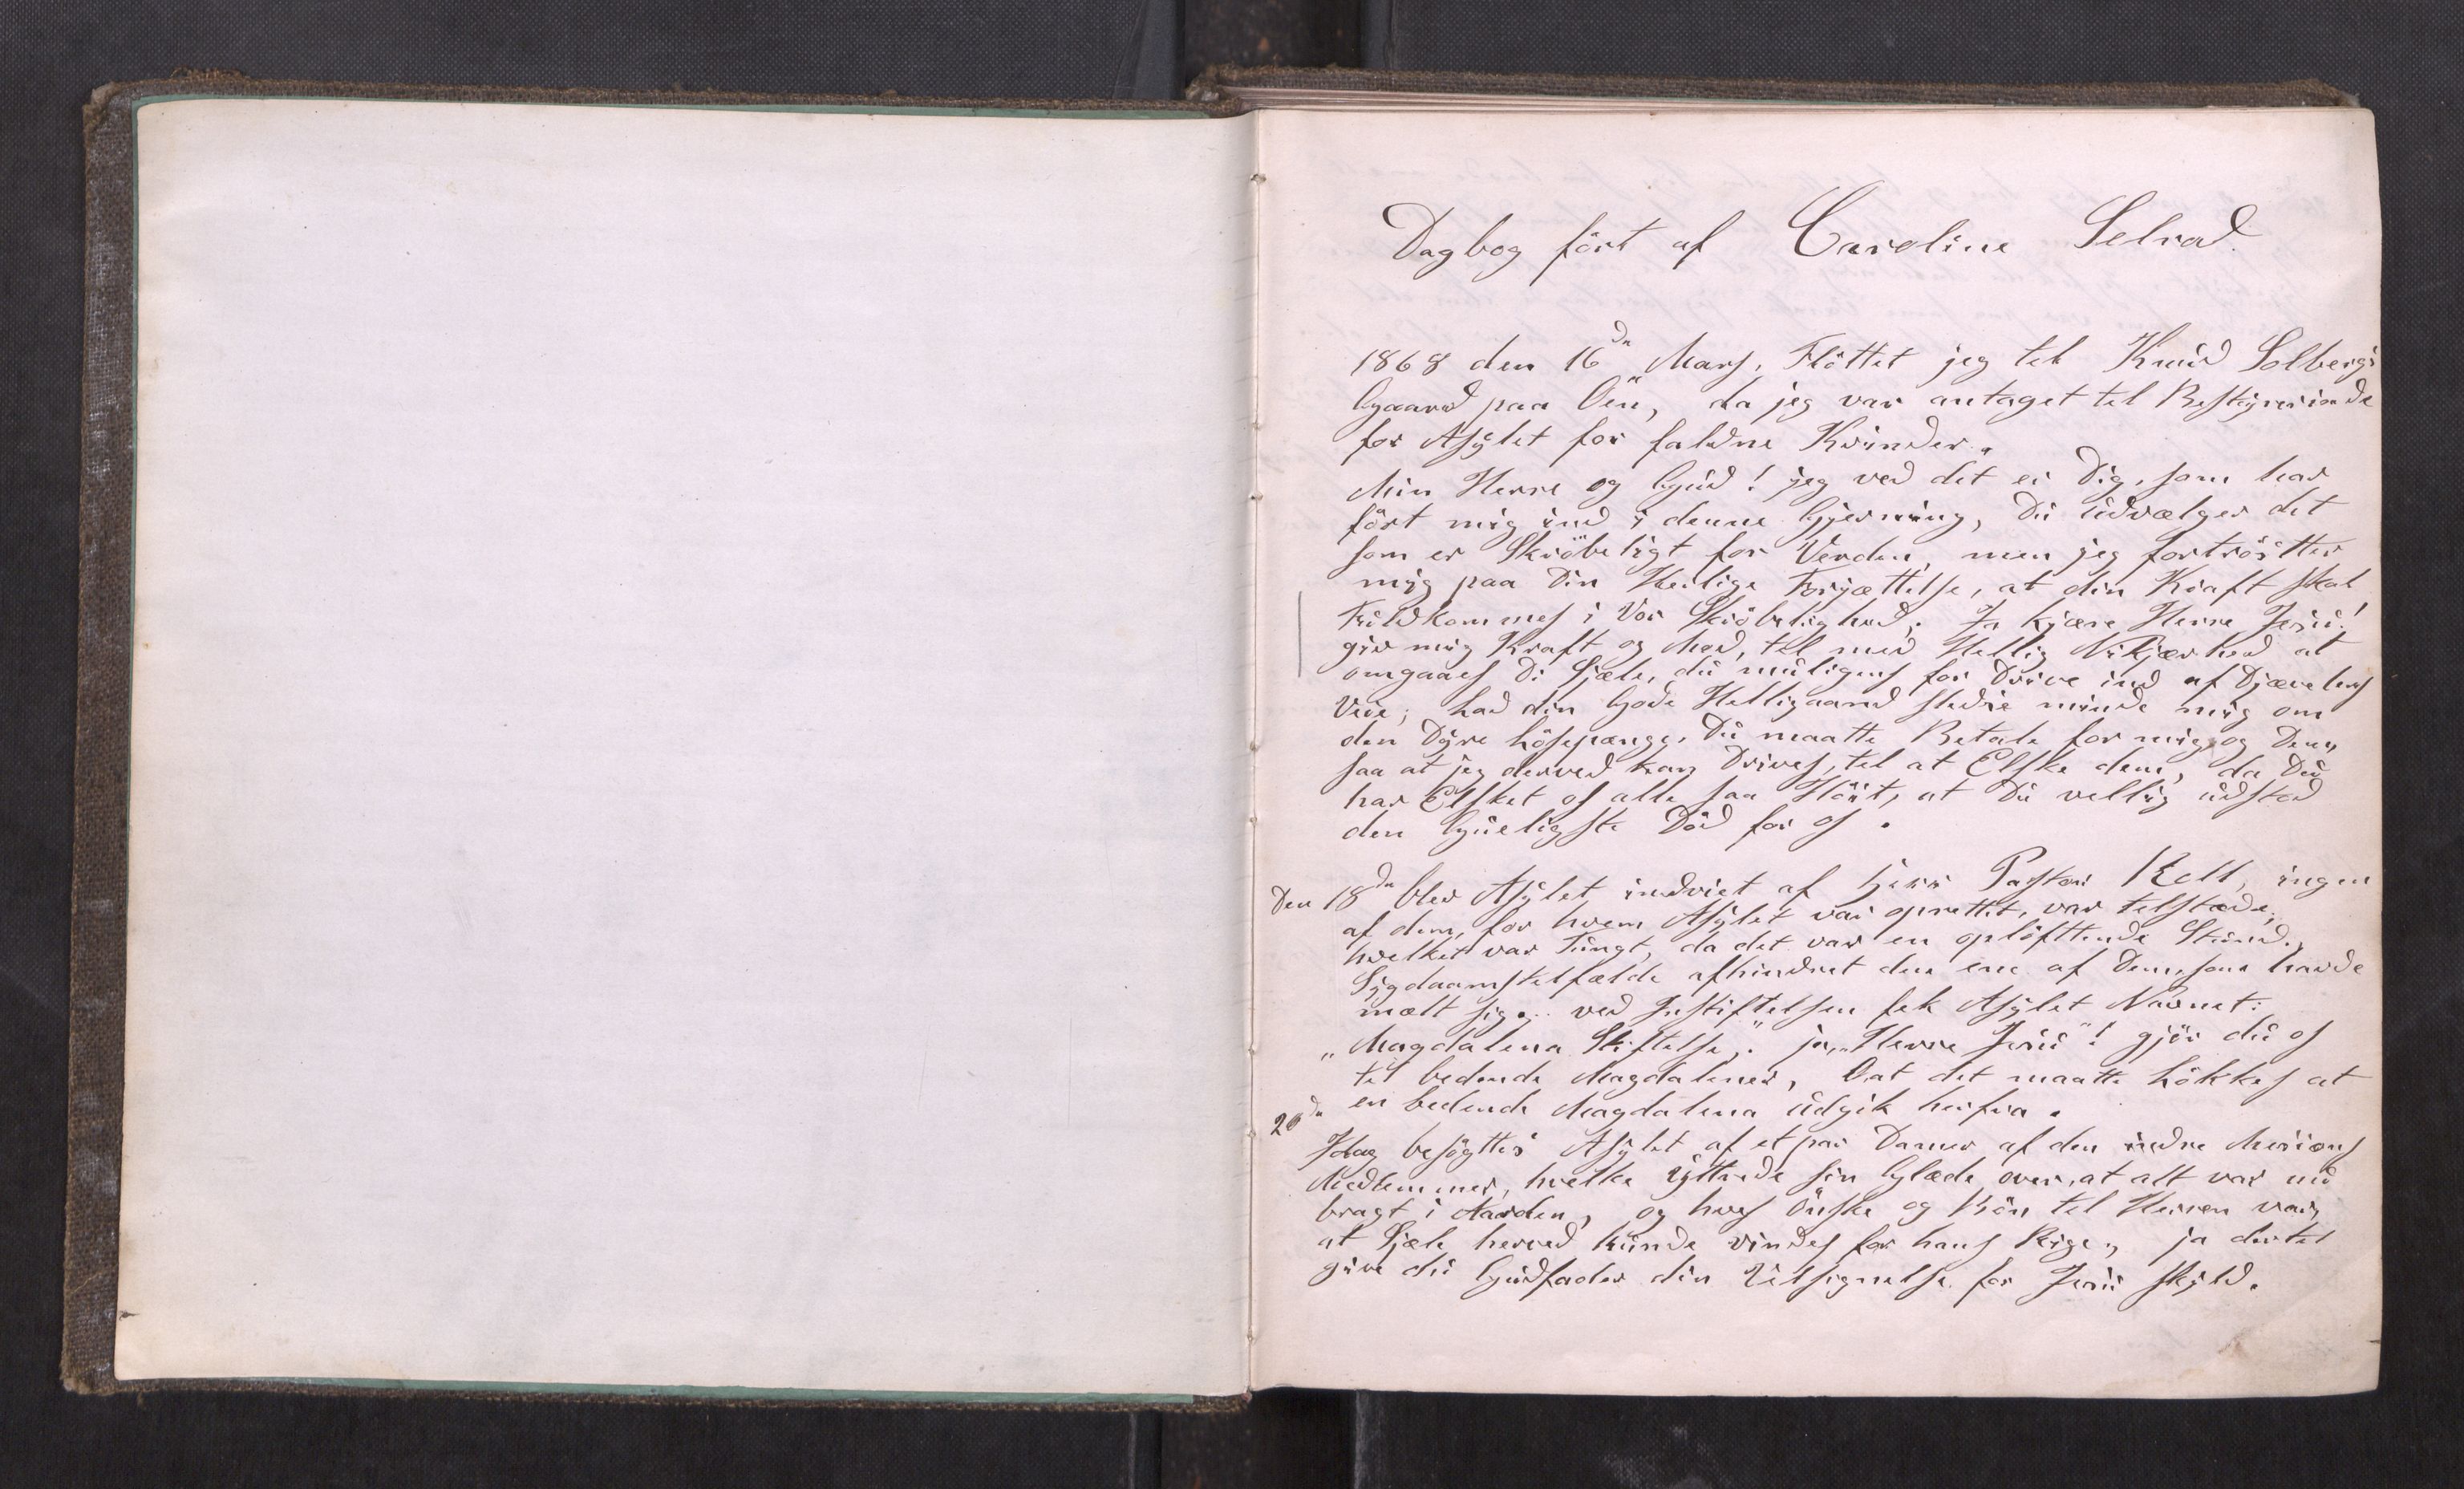 Dagbog fört af Caroline Selrod.
1868 den 16dn Mars, Flöttet jeg tel Knud Solbergs
Gaard paa Öen, da jeg var antaget tel Bestyrerinde
for Asylet for faldne Kvinder.
Min Herre og Gud! jeg ved det er Dig, som har
fört mig ind i denne Gjerning, Du udvælger det
som er Skröbeligt for Verden, men jeg fortröster
mig paa Din Heilige Forjættelse, at din Kraft skal
Fuldkommes i Vor Skröbelighed; Ja kjære Herre Jesu!
giv mig Kraft og Mod, tel med Hellig Nidkjærhed at
omgaaes Di Sjæle, du muligens for Drive ind af Djævelens
Veie; lad din Gode Helligaand stedse minde mig om
den Dyre Lösepænge, Du maatte Betale for mig og Dem,
saa at jeg derved kan Drives, tel at Elske dem, da Du
har Elsket os alle saa Höit, at Du vellig udstod
den Grueligste Död for os.
Den 18dn blev Asylet indviet af Herr Pastor Kell, ingen
af dem, for hvem Asylet var oprettet, var telstæde,
hvelket var Tungt, da det var en oplöfttende Stund.,
Sygdaamstelfælde afhindret den ene af Dem, som havde
mælt sig. ved Instiftelsen fek Asylet Navnet:
„Magdalena Stiftelse". ja, „Herre Jesu"! gjör du os
tel bedende Magdalener, O at det maatte Lökkes at
en bedende Magdalena udgik herfra.
20dn
Idag besögttes Asylet af et par Damer af den indre Missions
Medlemmer, hvelke yttrede sin Glæde over, at alt var nu
bragt i Orden, og hves Önske og Bön tel Herren var,
at Sjæle herved kunde vindes for hans Reige, ja dertel
give du Gudfader din Velsignelse for Jesu skyld.